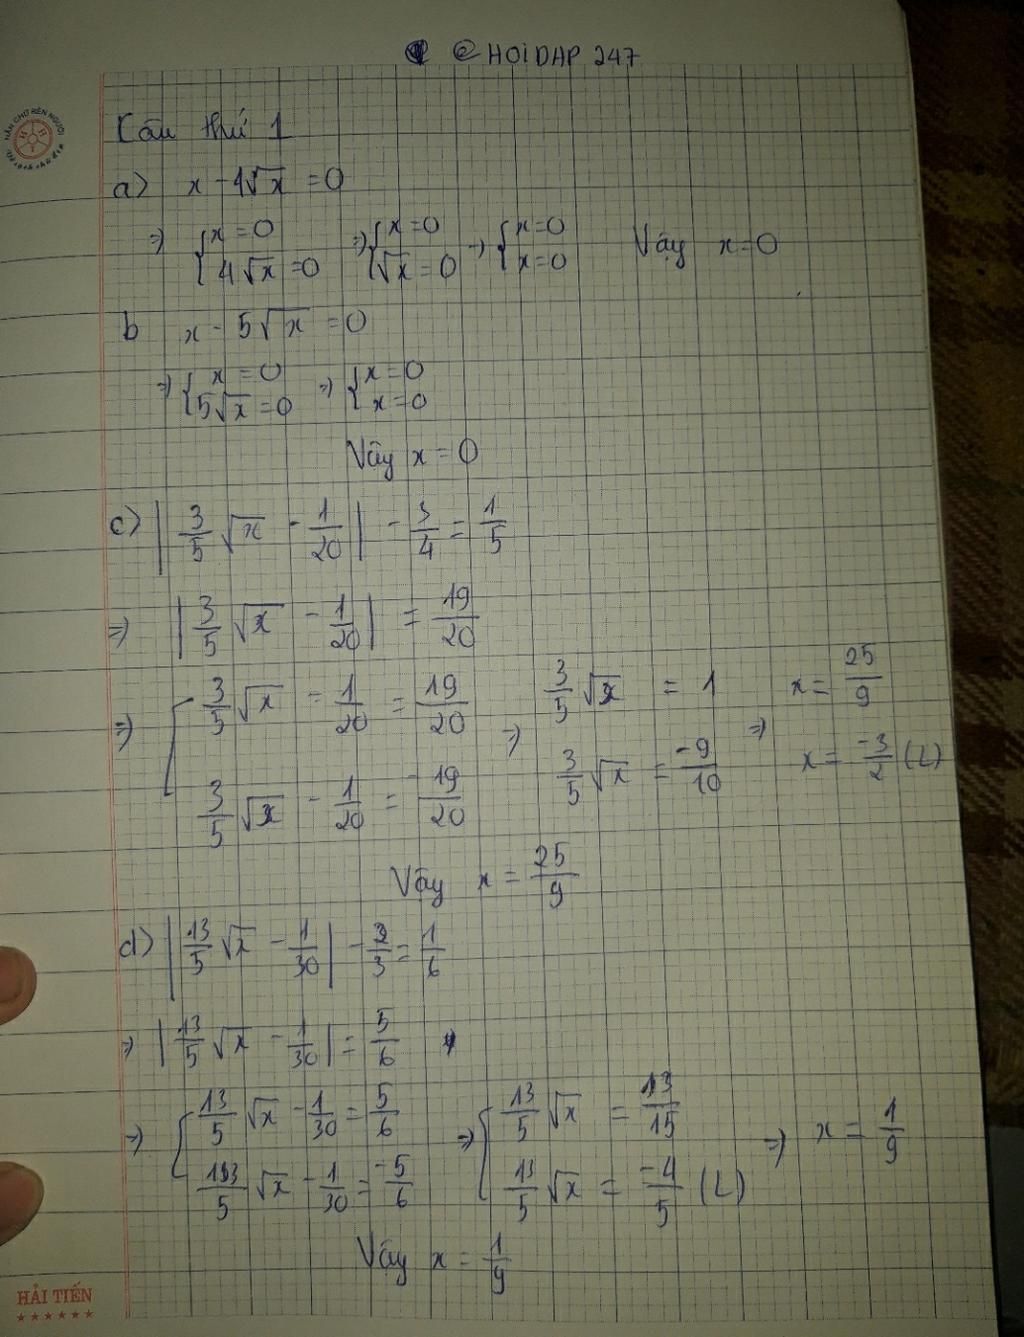 @ HOIDAP 247
NẮN CHỮ RÈN NGƯỜI
Câu thứ 1
a) x - 4√x = 0
=> { x = 0 ; 4√x = 0 => { x = 0 ; √x = 0 -> { x = 0 ; x = 0 Vậy x = 0
b x - 5√x = 0
=> { x = 0 ; 5√x = 0 => { x = 0 ; x = 0
Vậy x = 0
c) | 3/5 √x - 1/20 | - 3/4 = 1/5
=> | 3/5 √x - 1/20 | = 19/20
=> [ 3/5 √x - 1/20 = 19/20 => 3/5 √x = 1 => x = 25/9
3/5 √x - 1/20 = -19/20 3/5 √x = -9/10 x = -3/2 (L)
Vậy x = 25/9
d) | 13/5 √x - 1/30 | - 2/3 = 1/6
=> | 13/5 √x - 1/30 | = 5/6
=> { 13/5 √x - 1/30 = 5/6 => { 13/5 √x = 13/15 => x = 1/9
13/5 √x - 1/30 = -5/6 13/5 √x = -4/5 (L)
Vậy x = 1/9
HẢI TIẾN